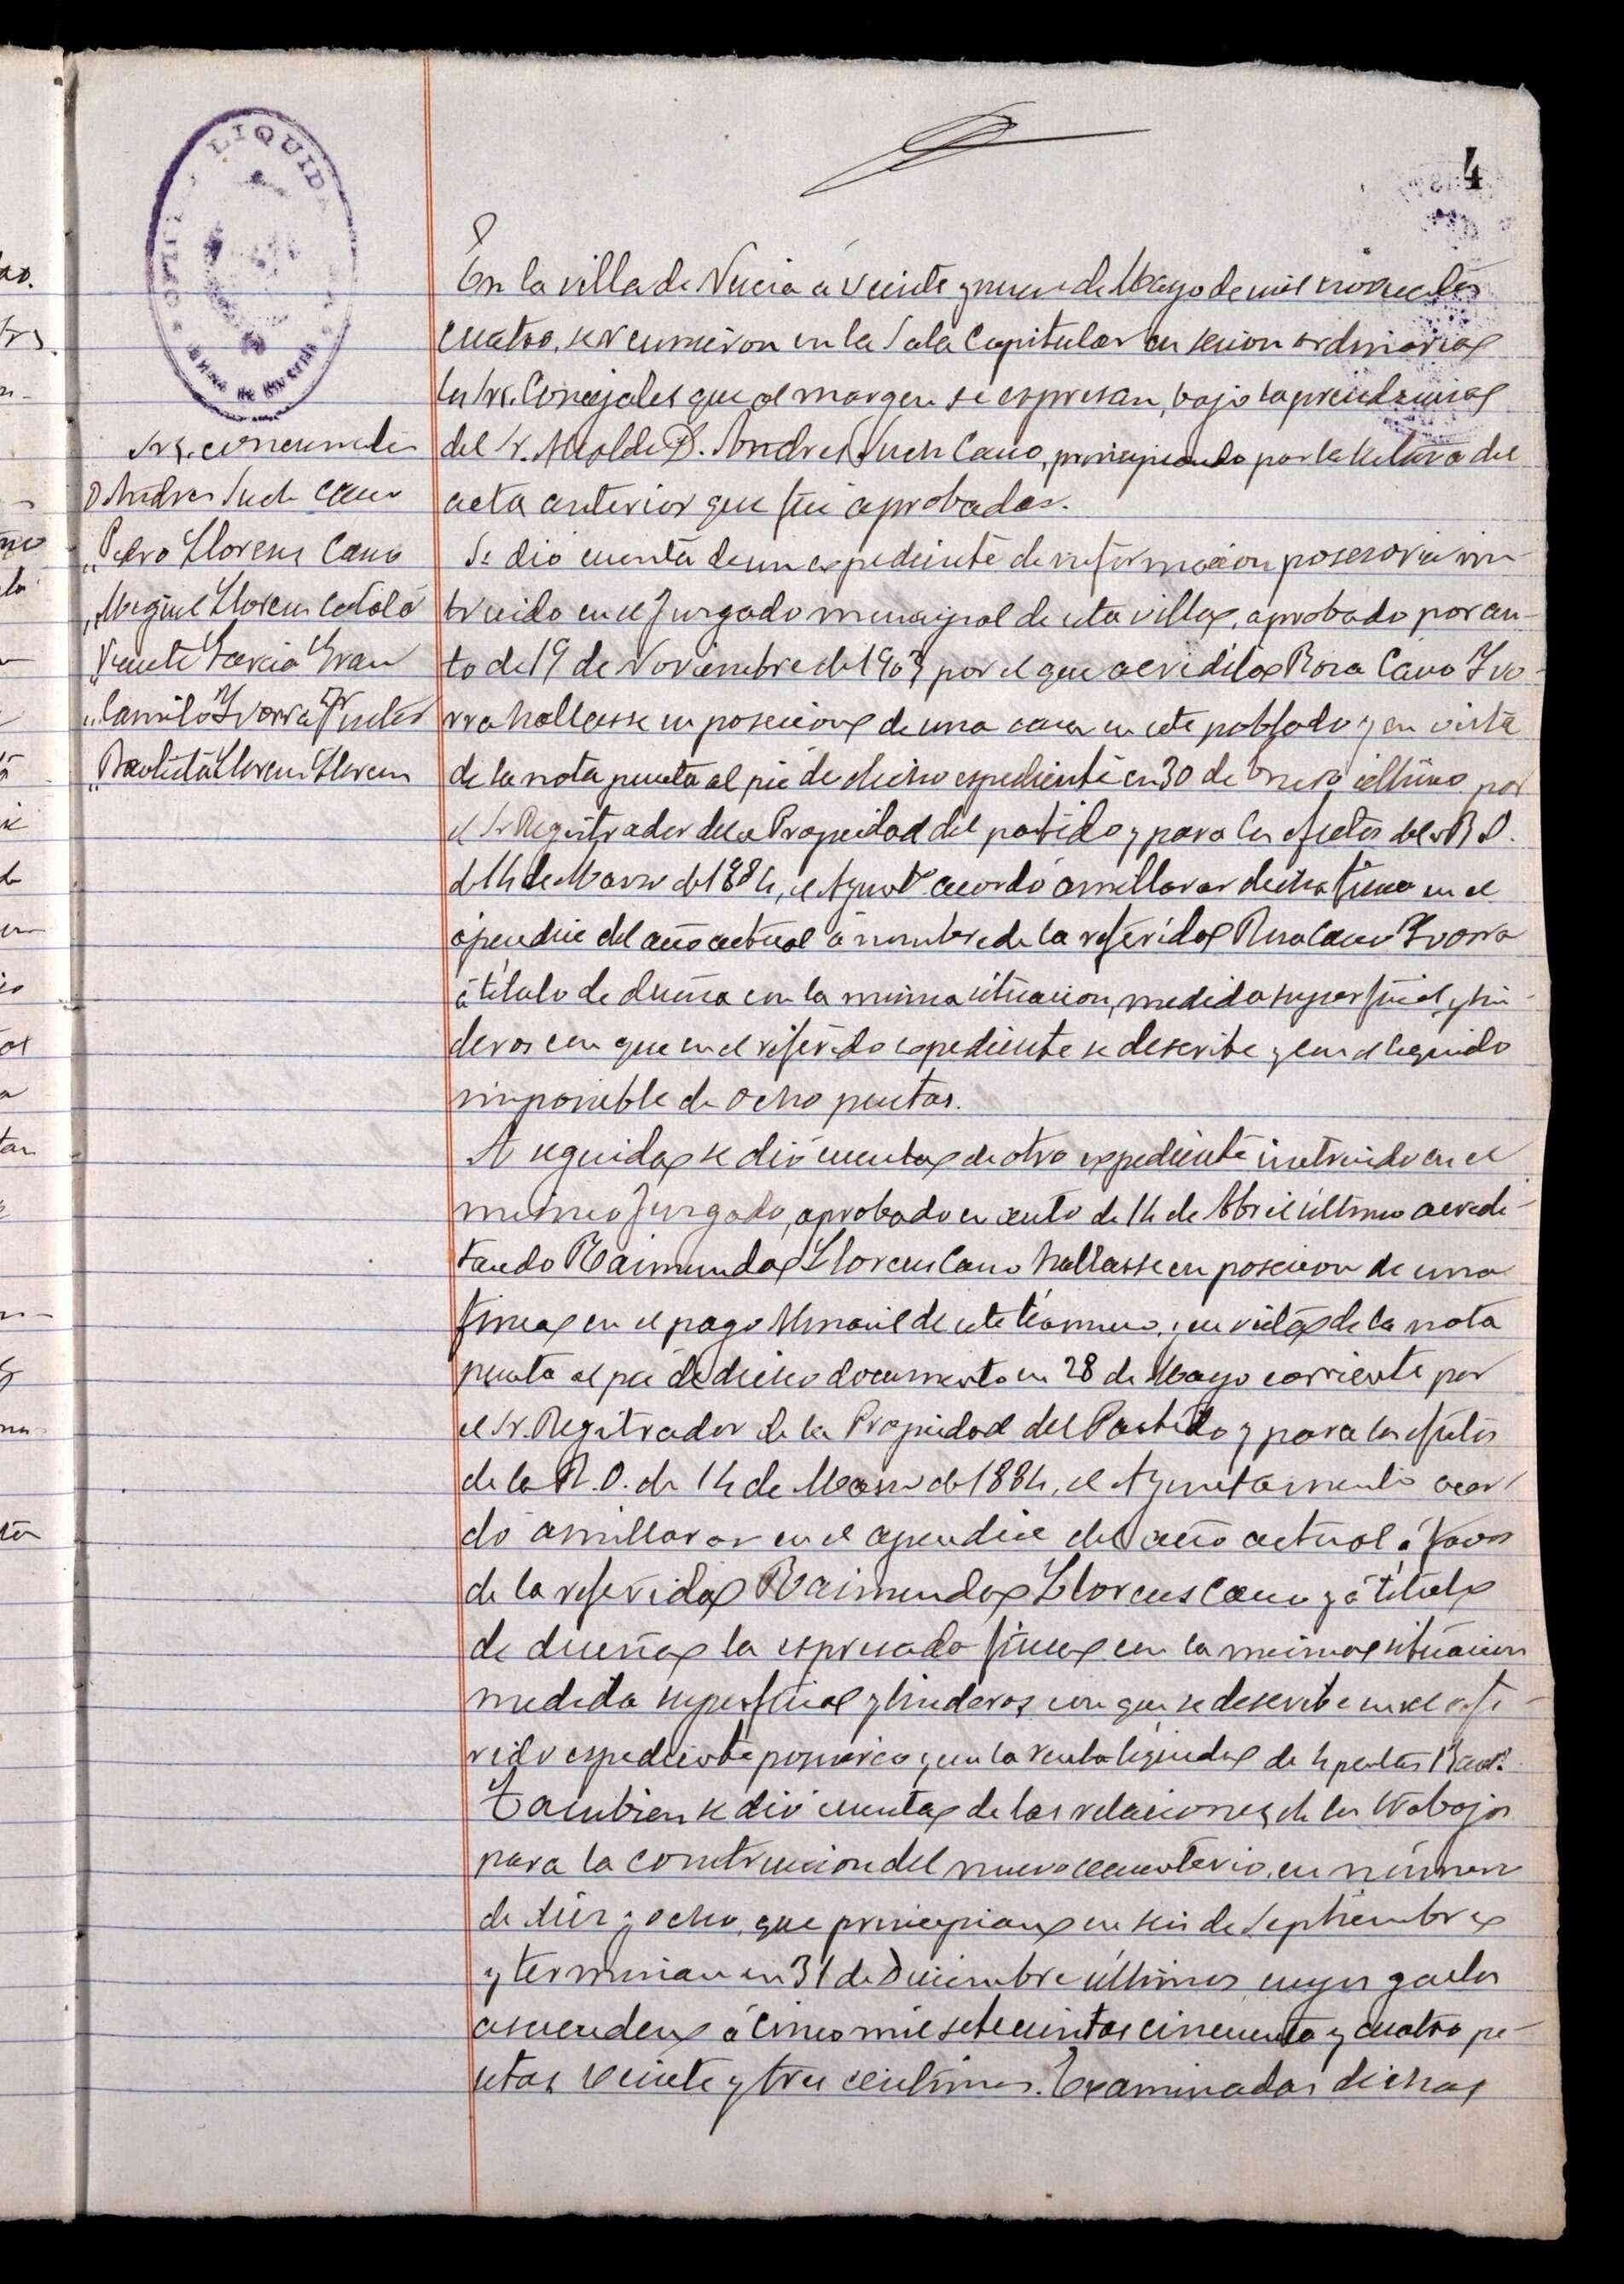 LIQUID
4
En la villa de Nucia á veinte y nueve de Mayo de mil novecientos
cuatro, se reunieron en la Sala Capitular en sesion ordinaria
los Srs. Concejales que al margen se espresan, bajo la presidencia
del Sr. Alcalde D. Andres Such Cano, principiando por la lectura del
acta anterior que fué aprobada.
Srs. concurrentes
D. Andres Such Cano
" Pedro Llorens Cano
" Miguel Llorens Catalá
" Vicente Garcia Grau
" Camilo Ivorra
" Bautista Llorens Llorens
Se dió cuenta de un espediente de informacion posesoria ins-
truido en el Juzgado municipal de esta villa, aprobado por au-
to de 19 de Noviembre de 1903 por el que acredita Rosa Cano Ivo-
rra hallarse en posesion de una casa en este poblado y en vista
de la nota puesta al pié de dicho espediente en 30 de Enero último por
el Sr. Registrador de la Propiedad del partido y para los efectos de la R. O.
de 14 de Marzo de 1884, el Ayunt.º acordó amillarar dicha finca en el
ápendice del año actual á nombre de la referida Rosa Cano Ivorra
á título de dueña con la misma situacion, medida superficial y lin-
deros con que en el referido espediente se describe y con el líquido
imponible de ocho pesetas.
A seguida se dió cuenta de otro espediente instruido en el
mismo Juzgado, aprobado en auto de 14 de Abril último acredi-
tando Raimunda Llorens Cano hallarse en posesion de una
finca en el pago de este término, y en vista de la nota
puesta al pié de dicho documento en 28 de Mayo corriente por
el Sr. Registrador de la Propiedad del Partido y para los efectos
de la R. O. de 14 de Marzo de 1884, el Ayuntamiento acor-
dó amillarar en el apendice del año actual á favor
de la referida Raimunda Llorens Cano y á título
de dueña la espresada finca con la misma situacion
medida superficial y linderos con que se describe en el refe-
rido espediente y con la renta líquida de 4 pesetas
Tambien se dió cuenta de las relaciones de los trabajos
para la construccion del nuevo cementerio, en número
de diez y ocho, que principian en seis de Septiembre
y terminan en 31 de Diciembre últimos cuyos gastos
ascienden á cinco mil setecientas cincuenta y cuatro pe-
setas veinte y tres céntimos. Examinadas dichas